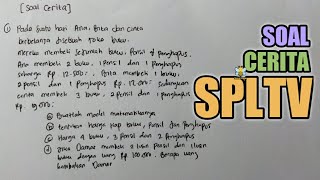 [Soal Cerita]
① Pada suatu hari Ani, Brika dan cinca
berbelanja disebuah toko buku.
mereka membeli sejumlah buku, Pensil & Penghapus.
Ani membeli 2 buku, 1 Pensil dan 1 Penghapus
seharga Rp. 12.500. membeli 1 buku,
2 pensil dan 1 penghapus Rp. sedangkan
membeli 3 buku, 2 Pensil dan 1 Penghapus
Rp.
Ⓐ Buatlah model matematikanya
Ⓑ tentukan harga tiap buku, Pensil dan Penghapus
Ⓒ Harga 4 buku, 3 Pensil dan 2 Penghapus
Ⓓ Jika Damar membeli 2 lusin Pensil dan 1 lusin
buku dengan uang Rp. 100.000. Berapa uang
kembalian Damar
SOAL
CERITA
SPLTV